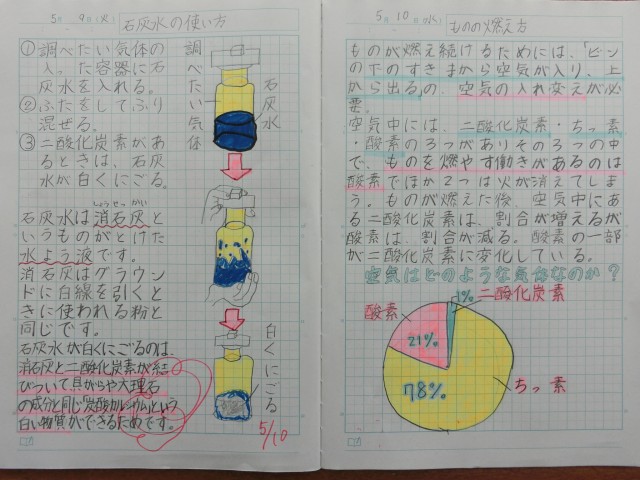 5月 9日(火) 石灰水の使い方
①調べたい気体の
入った容器に石
灰水を入れる。
②ふたをしてふり
混ぜる。
③二酸化炭素があ
るときは、石灰
水が白くにごる。
しょうせっかい
石灰水は消石灰と
いうものがとけた
水よう液です。
消石灰はグラウン
ドに白線を引くと
きに使われる粉と
同じです。
石灰水が白くにごるのは、
消石灰と二酸化炭素が結
びついて貝がらや大理石
の成分と同じ「炭酸カルシウム」という
白い物質ができるためです。
調べたい気体
石灰水
白くにごる
5/10
5月 10日(水) ものの燃え方
ものが燃え続けるためには、「ビン
の下のすきまから空気が入り、上
から出る」の、空気の入れ変えが必
要。
空気中には、二酸化炭素・ちっ素
・酸素の3つがありその3つの中
で、ものを燃やす働きがあるのは
酸素でほか2つは火が消えてしま
う。ものが燃えた後、空気中にあ
る二酸化炭素は、割合が増えるが
酸素は、割合が減る。酸素の一部
が二酸化炭素に変化している。
空気はどのような気体なのか?
1% 二酸化炭素
酸素
21%
78%
ちっ素